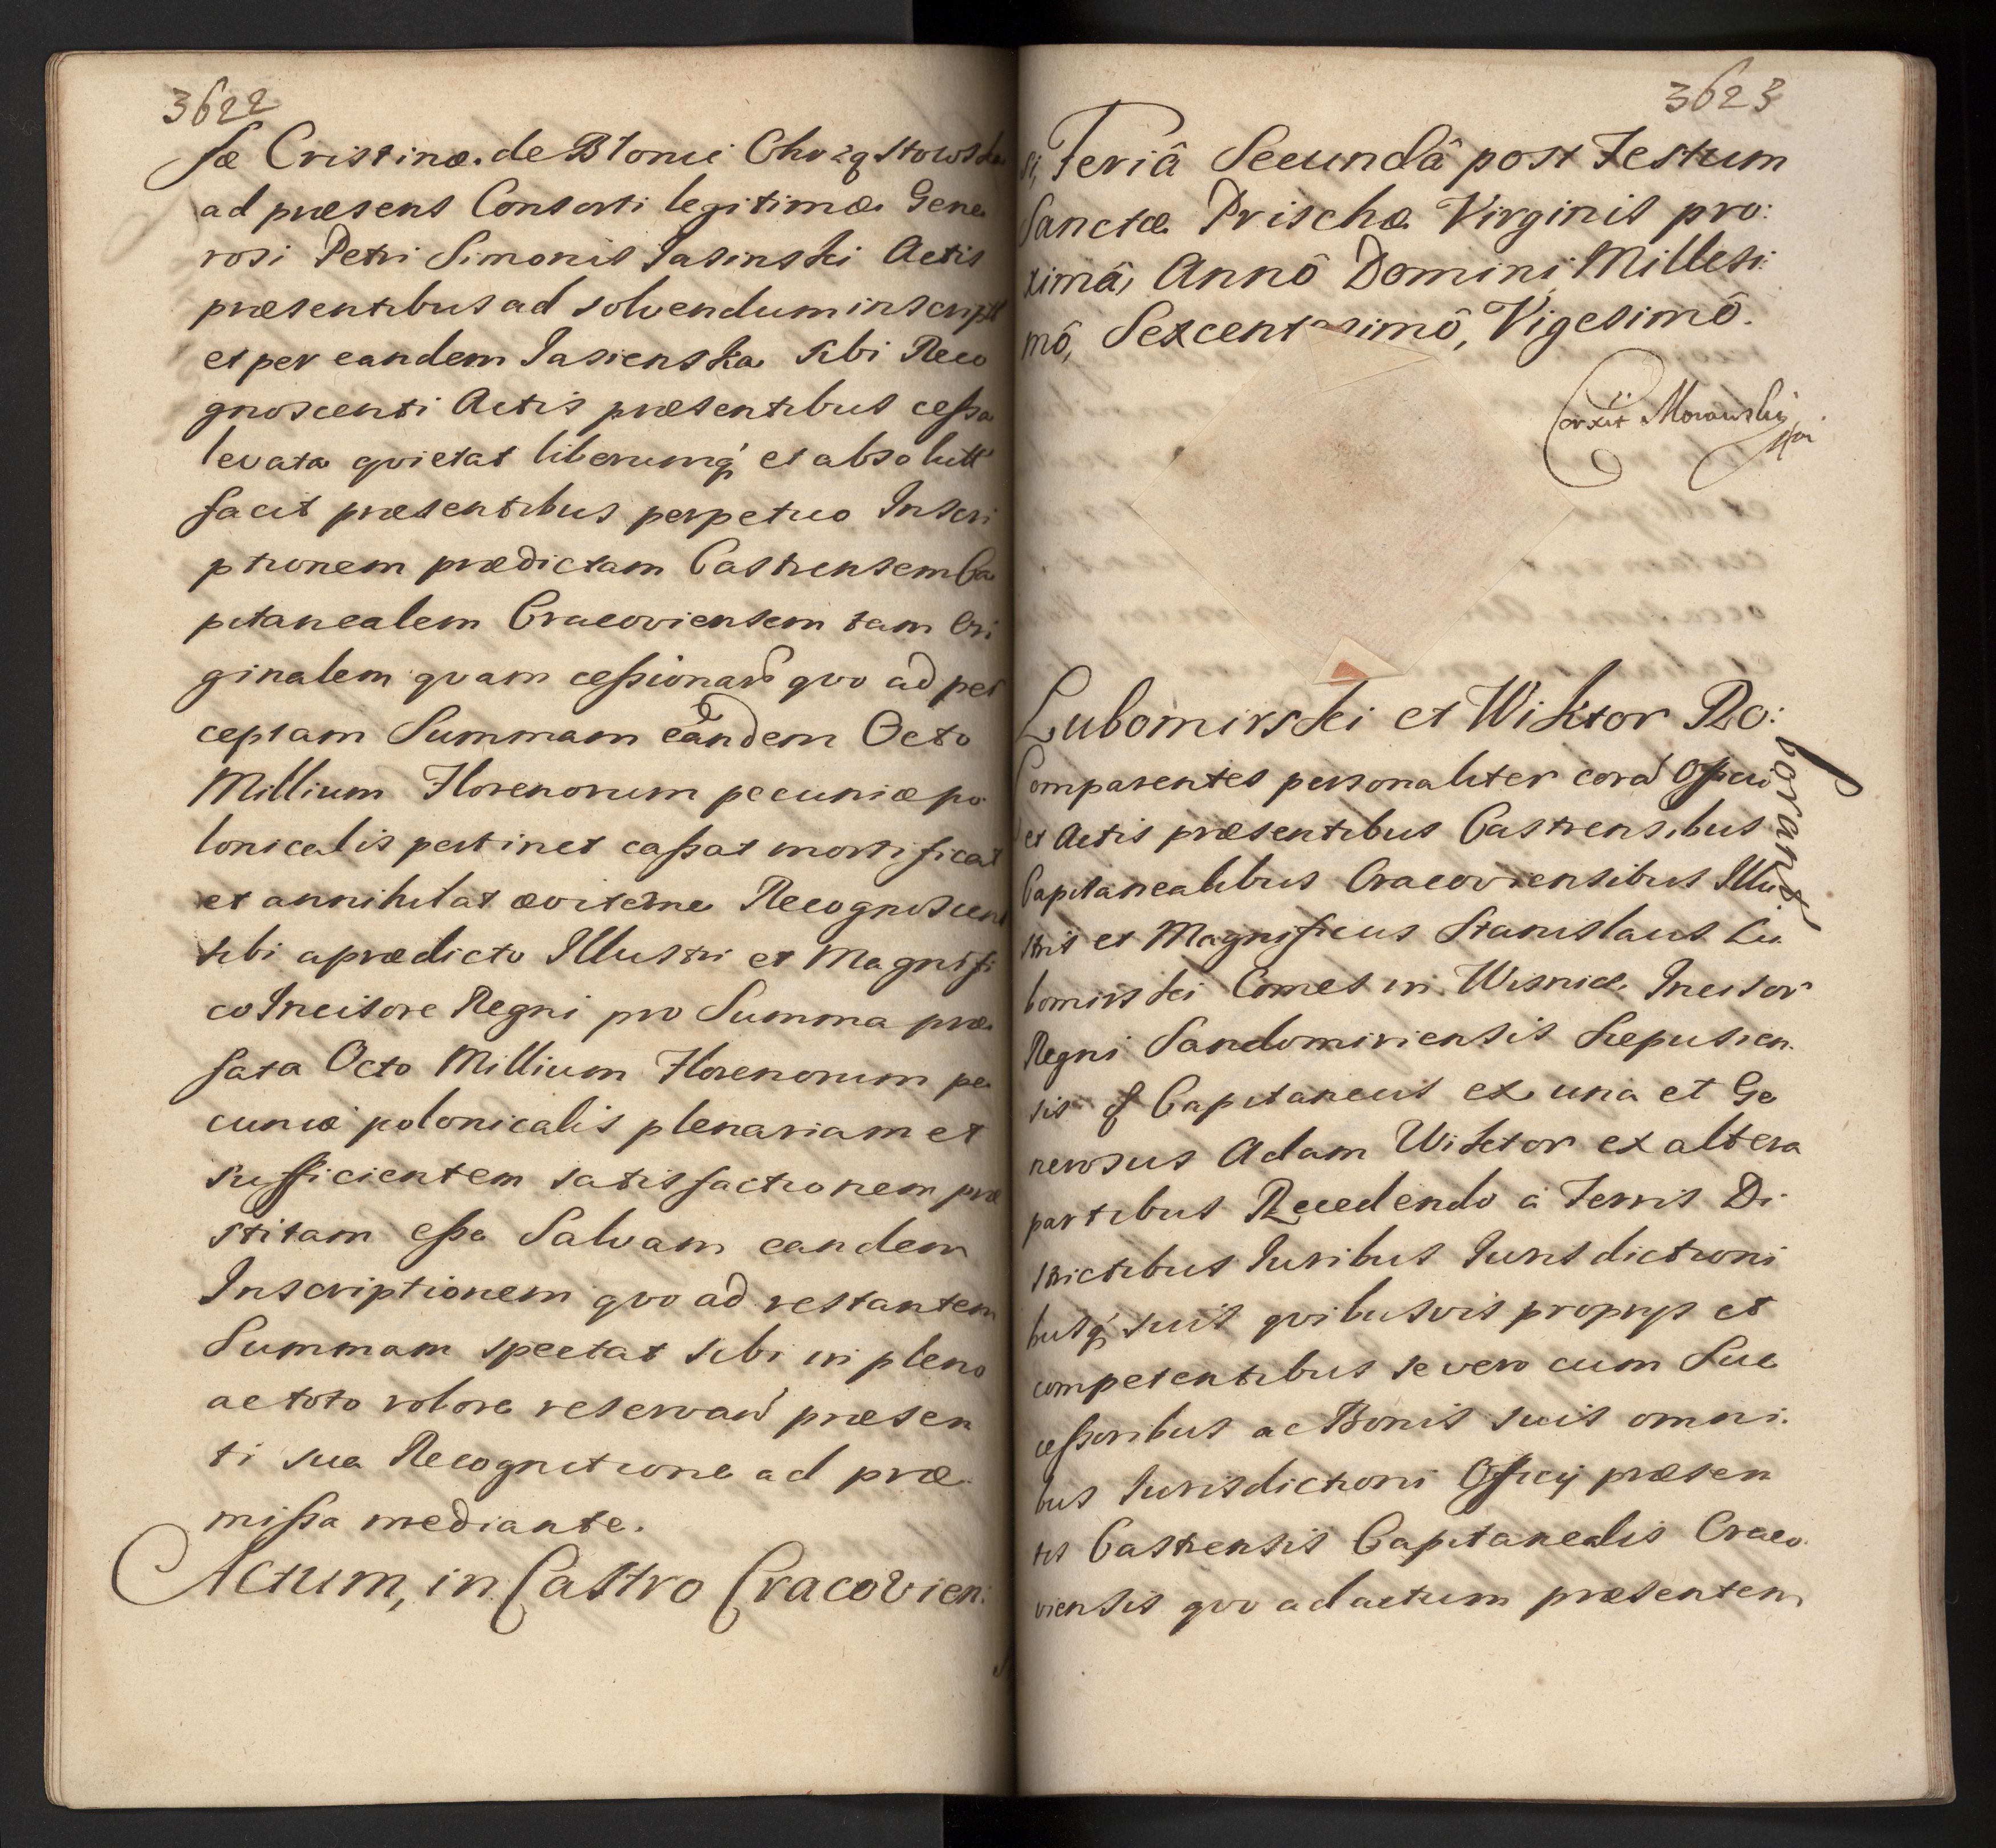 3622
sæ Cristinæ de Błonie Chrząstowska
ad præsens Consorti legitimæ Gene
rosi Petri Simonis Jasinski Actis
præsentibus ad solvendum inscript
et per eandem Jasienska sibi Reco
gnoscenti Actis præsentibus cessa
levata qvietat liberumq et absolutt
facit præsentibus perpetuo Inscri
ptionem prædictam Castrensem Ca
pitanealem Cracoviensem tam Ori
ginalem qvam cessionar qvo ad per
ceptam Summam eandem Octo
Millium Florenorum pecuniæ po
lonicalis pertinet cassat mortificat
et annihilat æviterne Recognoscens
sibi a prædicto Illustri et Magnifi
co Incisore Regni pro Summa præ
fata Octo Millium Florenorum pe
cuniæ polonicalis plenariam et
sufficientem satisfactionem præ
stitam esse Salvam eandem
Inscriptionem qvo ad restantem
Summam spectat sibi in pleno
ac toto robore reservan præsen
ti sua Recognitione ad præ
missa mediante.
Actum, in Castro Cracovien:
3623
si, Feriâ Secundâ post Festum
Sanctæ Prischæ Virginis pro:
ximâ, Annô Domini Millesi:
mô, Sexcentesimô, Vigesimô.
Correxit Morawskij
Lubomirski et Wiktor Ro:
borant
Comparentes personaliter cora Officio
et Actis præsentibus Castrensibus
Capitanealibus Cracoviensibus Illu
stris et Magnificus Stanislaus Lu
bomirski Comes in Wisnicz Incisor
Regni Sandomiriensis Scepusien
sis q Capitaneus ex una et Ge
nerosus Adam Wiktor ex altera
partibus Recedendo à Terris Di
strictibus Juribus Jurisdictioni
busq suis qvibusvis proprys et
competentibus se vero cum Suc
cessoribus ac Bonis suis omni
bus Jurisdictioni Officij præsen
tis Castrensis Capitanealis Craco
viensis qvo ad actum præsentem